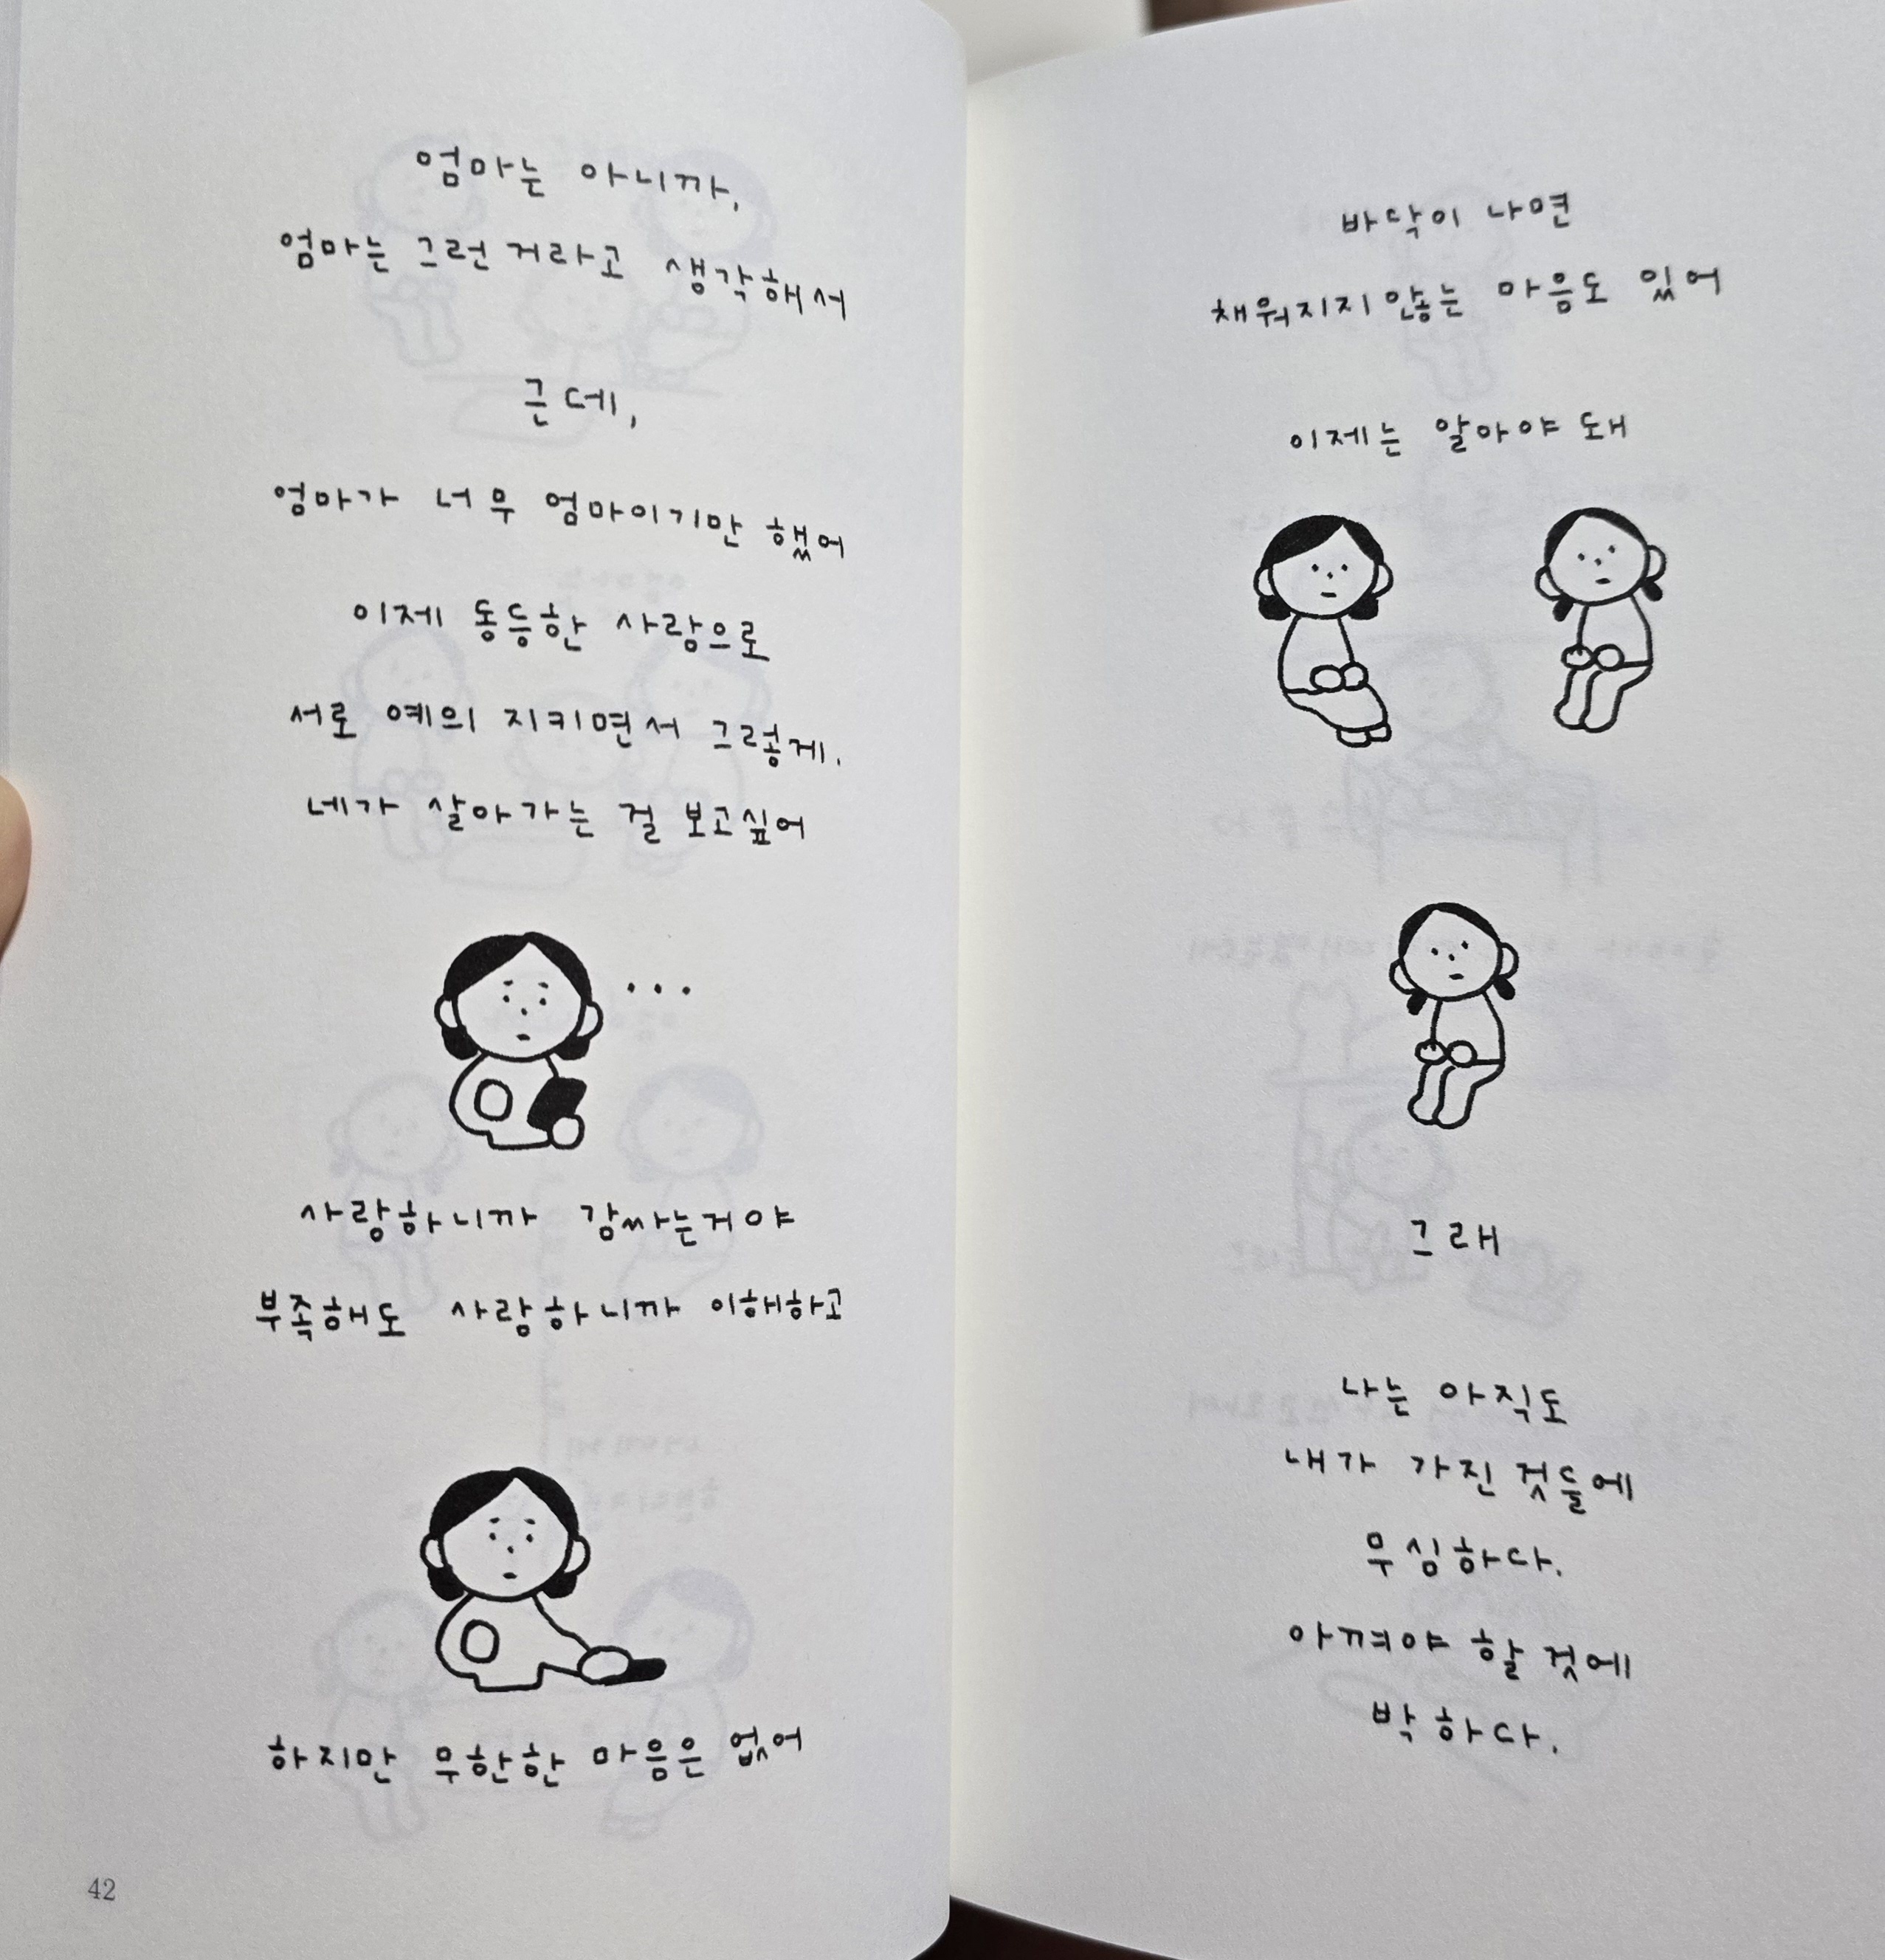 엄마는 아니까,
엄마는 그런 거라고 생각해서
근데,
엄마가 너무 엄마이기만 했어
이제 동등한 사람으로
서로 예의 지키면서 그렇게.
네가 살아가는 걸 보고싶어
...
사랑하니까 감싸는거야
부족해도 사랑하니까 이해하고
하지만 무한한 마음은 없어
42
바닥이 나면
채워지지 않는 마음도 있어
이제는 알아야 돼
그래
나는 아직도
내가 가진 것들에
무심하다.
아껴야 할 것에
박하다.